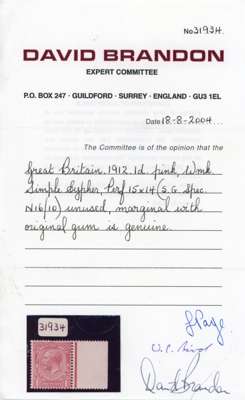 No 31934.
DAVID BRANDON
EXPERT COMMITTEE
P.O. BOX 247 · GUILDFORD · SURREY · ENGLAND · GU3 1EL
Date 18-8-2004
The Committee is of the opinion that the
Great Britain 1912 1d. pink, Wmk
Simple Cypher, Perf 15x14 (S.G. Spec.
N16/10) unused, marginal with
original gum is genuine.
31934
David Brandon